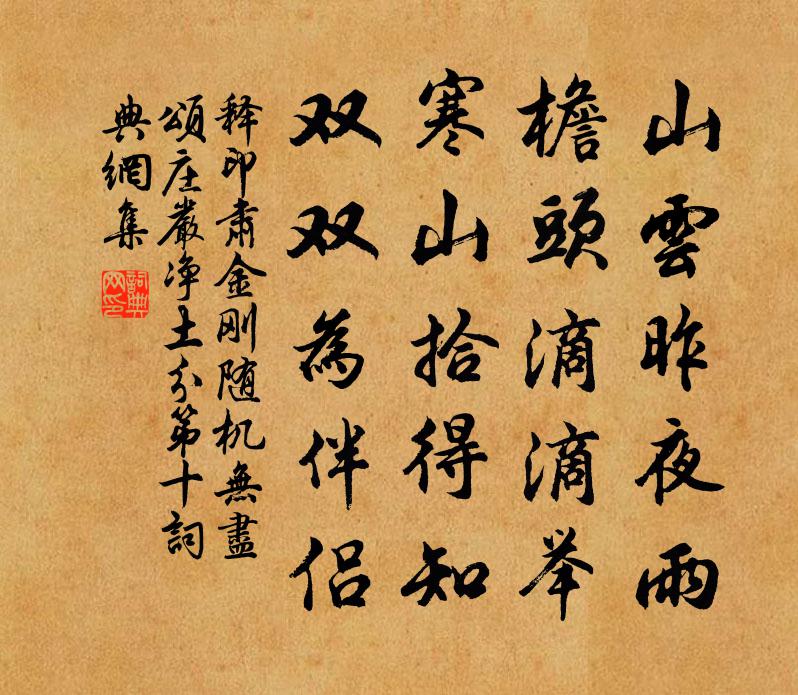 山雲昨夜雨
檐頭滴滴举
寒山拾得知
双双為伴侣
释印肃金刚随机無盡
頌庄嚴净土分第十詞
典網集
詞典
网印